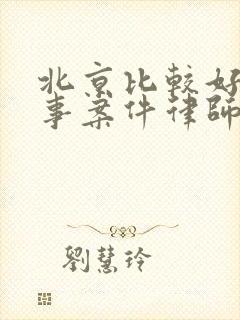 北京比較好
事案件律師
劉慧玲